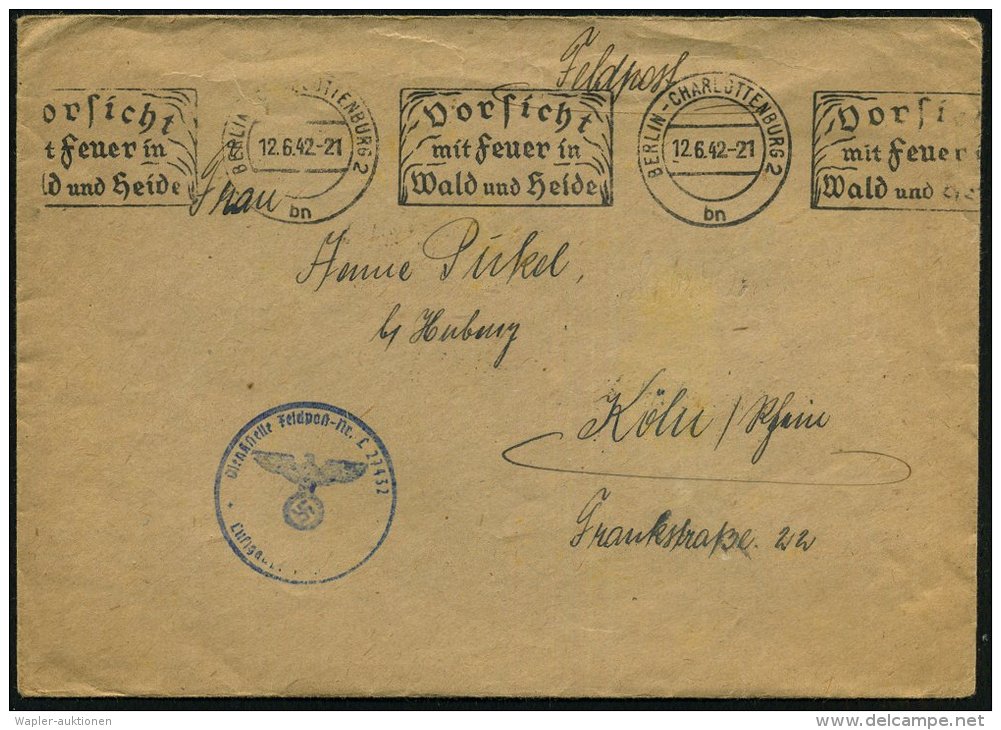 Feldpost
orsicht
t Feuer in
ld und Heide
BERLIN-CHARLOTTENBURG 2
12.6.42-21
bn
Vorsicht
mit Feuer in
Wald und Heide
BERLIN-CHARLOTTENBURG 2
12.6.42-21
bn
Vorsi
mit Feuer
Wald und
Frau
Pükel,
b/
Köln / Rhein
Frankstraße. 22
Dienststelle Feldpost-Nr. L 27432
Luftgau
Wapler-auktionen
delcampe.net